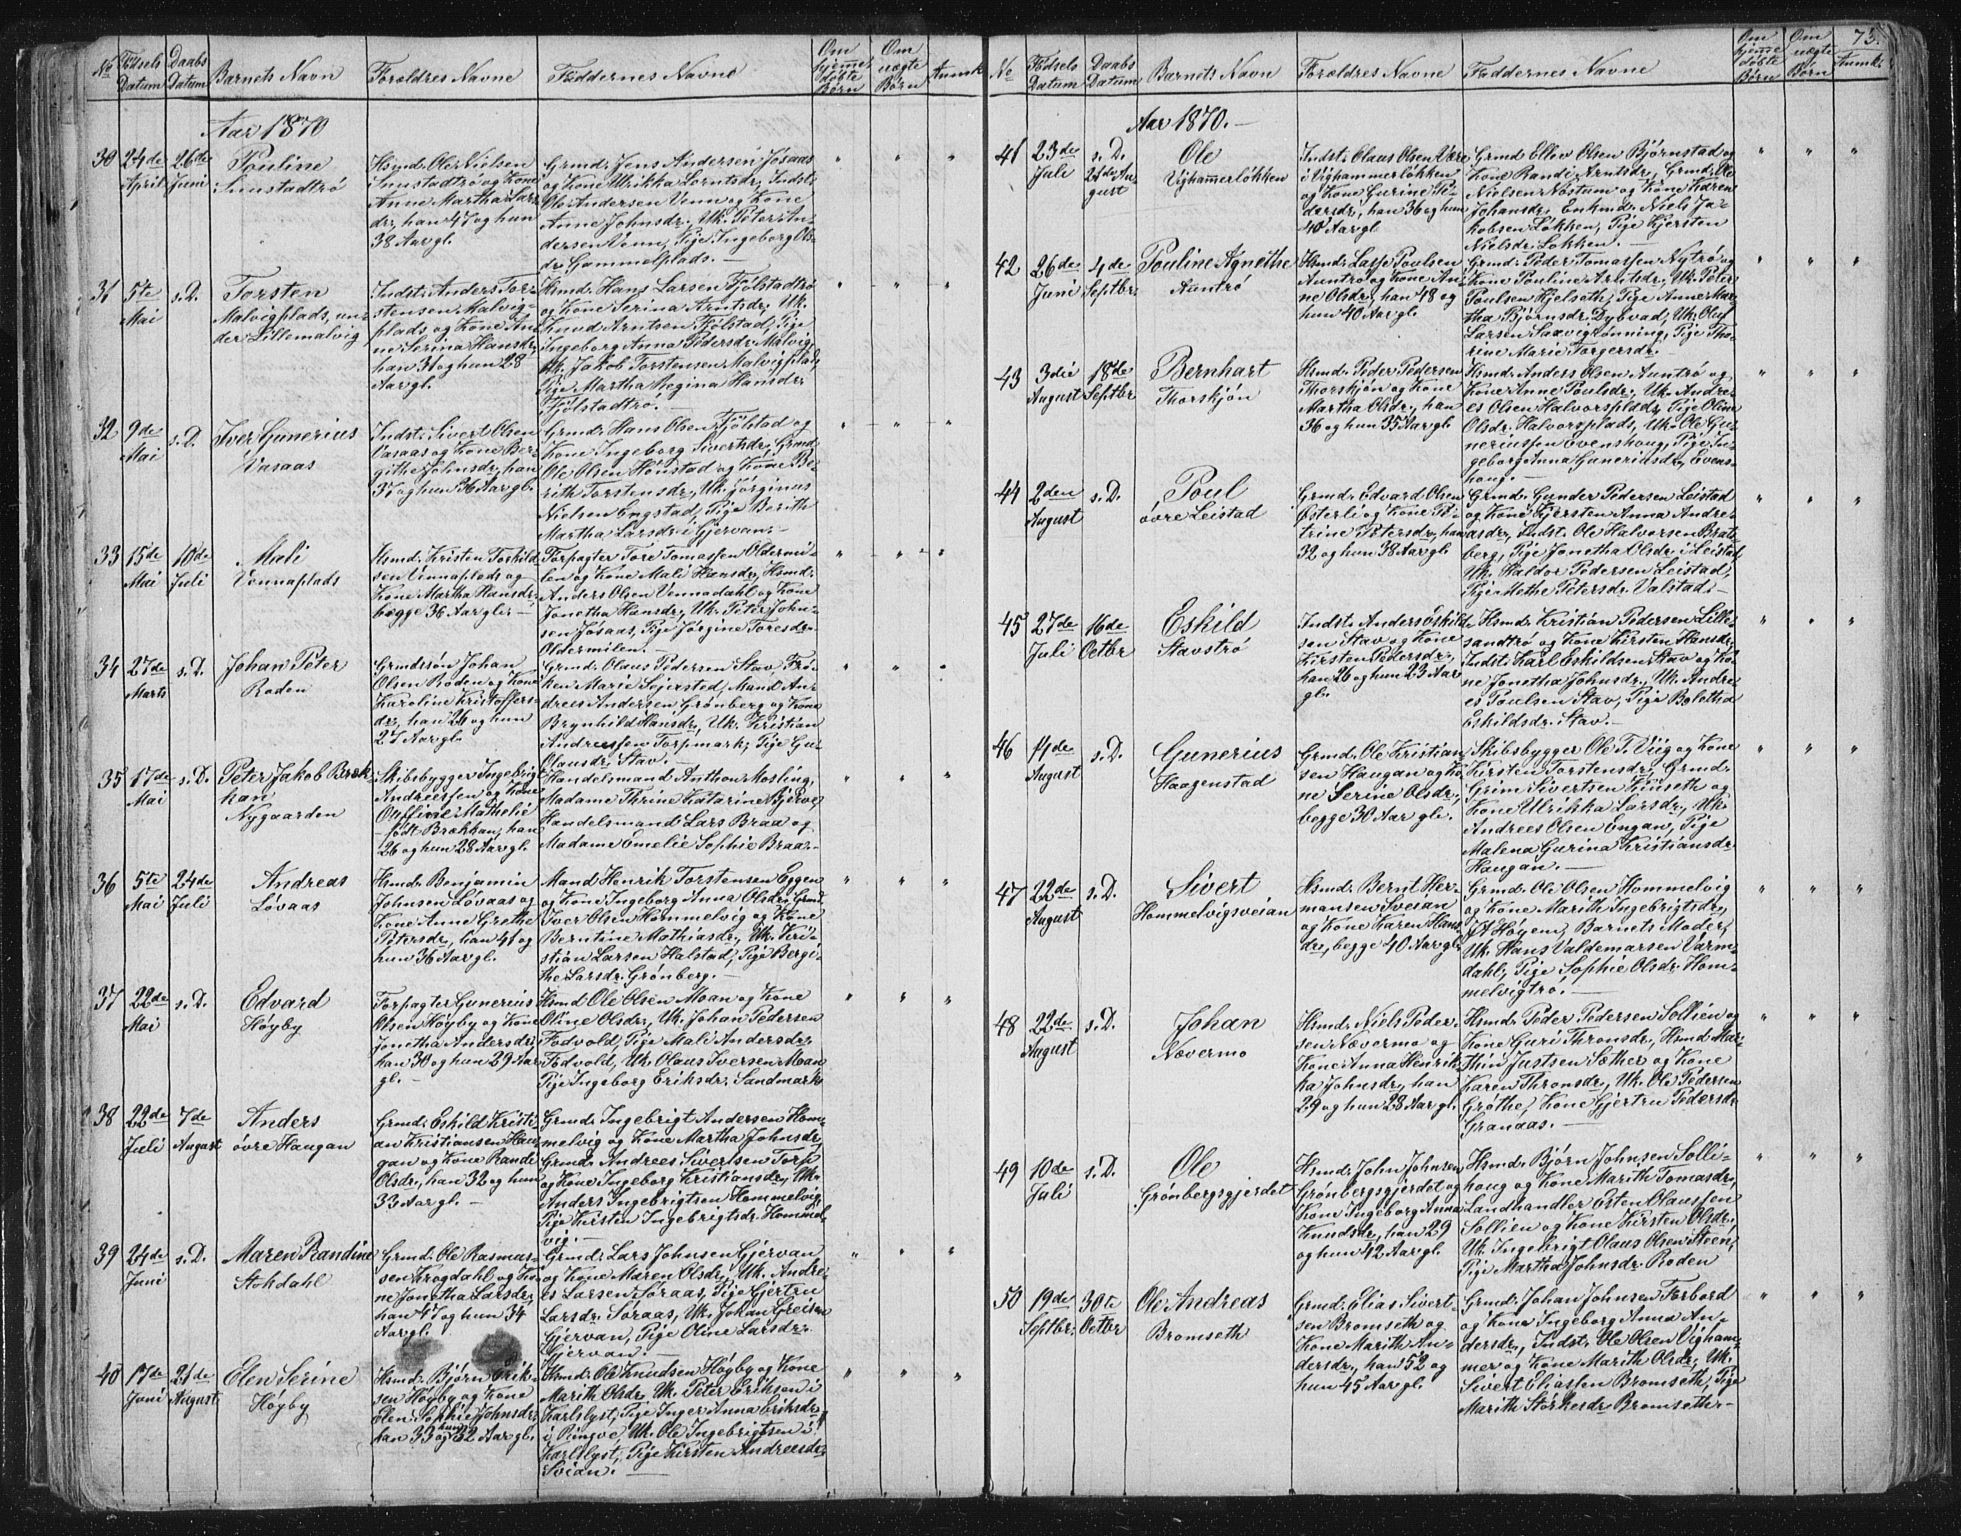 No Fødsels Datum Daabs Datum Barnets Navn Forældres Navne Faddernes Navne Om hjemme døbte Børn Om uægte Børn Anmk.
Aar 1870
30 24de April 26de Juni
Pauline
Hsmd. Ole Nielsen
og Kone
Anne Martha Lars-
dr, han 47 og hun
38 Aar gl.
Grmd. Jens Andersen Jøsaas
og Kone Ulrikka Lorntsdr, Indst.
Ole Andersen Venn og Kone
Anne Johnsdr, Uk. Peter An-
dersen Venn, Pige Ingeborg Ols-
dr Gammelplads. —
31 5te Mai s. D.
Torsten
Malvigplads, un-
der Lillemalvig
Indst. Anders Tor-
stensen Malvig-
plads og Kone An-
ne Serina Hansdr,
han 31 og hun 28
Aar gl.
Hsmd. Hans Larsen Fjølstadtrø
og Kone Serina Arntsdr, Uk.
Knud Arntsen Fjølstad, Pige
Ingeborg Anna Pedersdr Malvig,
Uk. Jakob Torstensen Malvigplads,
Pige Martha Regina Hansdr
Fjølstadtrø. —
32 9de Mai s. D.
Iver Gunerius
Vasaas
Indst. Sivert Olsen
Vasaas og Kone Ber-
githe Johnsdr, han
37 og hun 36 Aar gl.
Grmd. Hans Olsen Fjølstad og
Kone Ingeborg Sivertsdr, Grmd.
Ole Olsen Hønstad og Kone Be-
rith Torstensdr, Uk. Jørginus
Nielsen Engstad, Pige Berith
Martha Larsdr i Gjervan —
33 15de Mai 10de Juli
Mali
Vennaplads
Hsmd. Kristen Torkild-
sen Vennaplads og
Kone Martha Hansdr,
begge 36 Aar gl. —
Forpagter Tore Tomassen Oldermi-
len og Kone Mali Hansdr, Hsmd.
Anders Olsen Vennadahl og Kone
Jonetha Hansdr, Uk. Peter John-
sen Jøsaas, Pige Jørgine Toresdr
Oldermilen. —
34 27de Marts s. D.
Johan Peter
Roden
Grmdssøn Johan
Olsen Roden og Kone
Karoline Kristoffers-
dr, han 26 og hun
27 Aar gl.
Grmd. Olaus Pedersen Stav, Frø-
ken Marie Sejersted, Mand An-
drees Andersen Grønberg og Kone
Brynhild Hansdr, Uk. Kristian
Andreessen Torpmark, Pige Gu-
Olausdr Stav. —
35 17de Mai s. D.
Peter Jakob Bræk-
kan
Nygaarden
Skibsbygger Ingebrigt
Andreessen og Kone
Mathelie
født Brækkan, han
26 og hun 28 Aar gl.
Handelsmand Anthon Mosling,
Madame Thrine Katarine Bjerve
Handelsmand Lars Braa og
Madame Emelie Sophie Braa. —
36 5te Mai 24de Juli
Andreas
Løvaas
Hsmd. Benjamin
Johnsen Løvaas og
Kone Anne Grethe
Petersdr, han 41 og
hun 36 Aar gl.
Mand Henrik Torstensen Eggen
og Kone Ingeborg Anna Olsdr, Grmd.
Iver Olsen Hommelvig og Kone
Berntine Mathiasdr, Uk. Kri-
stian Larsen Halstad, Pige Bergi-
the Larsdr Grønberg. —
37 22de Mai s. D.
Edvard
Høyby
Forpagter Gunerius
Olsen Høyby og Kone
Jonetha Andersdr,
han 30 og hun 29 Aar
gl. —
Hsmd Ole Olsen Moan og Kone
Oline Olsdr, Uk. Johan Pedersen
Fodvold, Pige Mali Andersdr
Fodvold, Uk. Olaus Iversen Moan
Pige Ingeborg Eriksdr Sandmark
38 22de Juli 7de August
Anders
øvre Haugan
Grmd. Eskild Kristi-
an Kristiansen Hau-
gan og Kone Rande
Olsdr, han 32 og hun
33 Aar gl. —
Grmd. Ingebrigt Andersen Hom-
melvig og Kone Martha Johnsdr,
Grmd. Andrees Sivertsen Torp
og Kone Ingeborg Kristiansdr, Uk.
Anders Ingebrigtsen Hommelvig,
Pige Kirsten Ingebrigtsdr Hommel-
vig. —
39 24de Juni s. D.
Maren Randine
Stokdahl
Grmd. Ole Rasmus-
sen Krogdahl og Ko-
ne Jonetha Larsdr,
han 47 og hun 34
Aar gl.
Grmd. Lars Johnsen Gjervan
og Kone Maren Olsdr, Uk. Andre-
es Larsen Søraas, Pige Gjertru
Larsdr Søraas, Uk. Johan Greisen
Gjervan, Pige Oline Larsdr
Gjervan. —
40 17de Juni 21de August
Elen Serine
Høyby
Hsmd. Bjørn Erik-
sen Høyby og Kone
Elen Sophie Johnsdr,
han 33 og hun 32 Aar gl.
Hsmd. Ole Knudsen Høyby og Kone
Marith Olsdr, Uk. Peter Eriksen i
Karlslyst, Pige Inger Anna Eriksdr
i Pungve, Uk. Ole Ingebrigtsen i
Karlslyst, Pige Kirsten Andreesdr
Sveian. —
73.
No Fødsels Datum Daabs Datum Barnets Navn Forældres Navne Faddernes Navne Om hjemme døbte Børn Om uægte Børn Anmk.
Aar 1870. —
41 23de Juli s. D. 21de August
Ole
Vighammerløkken
Indst. Olaus Olsen Være
i Vighammerløkken
og Kone Gurine Pe-
dersdr, han 36 og hun
40 Aar gl.
Grmd Ellev Olsen Bjørnstad og
Kone Randi Arntsdr, Grmd. Ole
Nielsen Nostum og Kone Karen
Johansdr, Enkmd. Niels Ja-
kobsen Løkken, Pige Kjersten
Nielsdr Løkken. —
42 26de Juni 4de Septbr
Pouline Agnethe
Auntrø
Hsmd. Lasse Poulsen
Auntrø og Kone An-
ne Olsdr, han 48 og
hun 40 Aar gl.
Grmd. Peder Tomassen Nytrø og
Kone Pouline Arntsdr, Uk. Peter
Poulsen Hjelseth, Pige Anne Mar-
tha Bjørnsdr Dybvad, Uk. Oluf
Larsen Saxvigrønning, Pige Tho-
rine Marie Torgersdr. —
43 3die August 18de Septbr
Bernhart
Thorskjøn
Hsmd. Peder Pedersen
Thorskjøn og Kone
Martha Olsdr, han
36 og hun 35 Aar gl.
Hsmd. Anders Olsen Auntrø og
Kone Anne Poulsdr, Uk. Andre-
es Olsen Halvorsplads, Pige Oline
Olsdr Halvorsplads, Uk. Ole Gu-
neriussen Evenshaug, Pige In-
geborg Anna Guneriusdr Evens-
haug. —
44 2den August s. D.
Poul
øvre Leistad
Grmd. Edvard Olsen
Østerli og Kone Pe-
trine Petersdr, han
32 og hun 38 Aar gl.
Grmd. Gunder Pedersen Leistad
og Kone Kjersten Anna Andre-
asdr, Indst. Ole Halvorsen Brat-
berg, Pige Jonetha Olsdr i Leistad,
Uk. Haldor Pedersen Leistad,
Pige Methe Petersdr Valstad. —
45 27de Juli 16de Octbr
Eskild
Stavstrø
Indst. Anders Eskild-
sen Stav og Kone
Kirsten Pedersdr,
han 26 og hun 23 Aar
gl.
Hsmd. Kristian Pedersen Lille-
sandtrø og Kone Kirsten Hansdr,
Indst. Karl Eskildsen Stav og Ko-
ne Jonetha Johnsdr, Uk. Andre-
es Poulsen Stav, Pige Boletha
Eskildsdr Stav. —
46 14de August s. D.
Gunerius
Haagenstad
Grmd. Ole Kristian-
sen Haugan og Ko-
ne Serine Olsdr,
begge 30 Aar gl.
Skibsbygger Ole T. Viig og Kone
Kirsten Torstensdr, Grmd.
Grim Sivertsen Kinseth og
Kone Ulrikka Larsdr, Uk.
Andrees Olsen Engan, Pige
Malena Gurina Kristiansdr
Haugan. —
47 22de August s. D.
Sivert
Hommelvigsveian
Hsmd. Bernt Her-
mansen Sveian
og Kone Karen Hans-
dr, begge 40 Aar gl.
Grmd. Ole Olsen Hommelvig
og Kone Marith Ingebrigtsdr,
J A Høyem, Barnets Moder,
Uk. Hans Valdemarsen Varm-
dahl, Pige Sophie Olsdr Hom-
melvigtrø. —
48 22de August s. D.
Johan
Nævermo
Hsmd. Niels Peder-
sen Nævermo og
Kone Anna Henrik-
ka Johnsdr, han
29 og hun 28 Aar gl.
Hsmd. Peder Pedersen Sollien og
Kone Guri Thronsdr, Hsmd Mar-
thin Justsen Sæther og Kone
Karen Thronsdr, Uk. Ole Pedersen
Grøthe, Kone Gjertru Pedersdr
Granaas. —
49 10de Juli s. D.
Ole
Grønbergsgjerdet
Hsmd. John Johnsen
Grønbergsgjerdet og
Kone Ingeborg Anna
Knudsdr, han 29
og hun 42 Aar gl.
Hsmd. Bjørn Johnsen Solli-
haug og Kone Marith Tomasdr,
Landhandler Esten Olaussen
Sollien og Kone Kirsten Olsdr,
Uk. Ingebrigt Olaus Olsen Steen,
Pige Martha Johnsdr Roden
50 19de Septbr. 30te Octbr
Ole Andreas
Bromseth
Grmd. Elias Sivert-
sen Bromseth og
Kone Marith An-
dersdr, han 52 og
hun 45 Aar gl.
Grmd. Johan Johnsen Forbord
og Kone Ingeborg Anna An-
dersdr, Indst. Ole Olsen Vigham-
mer og Kone Marith Olsdr, Uk.
Sivert Eliassen Bromseth, Pige
Marith Størkesdr Bromseth. —